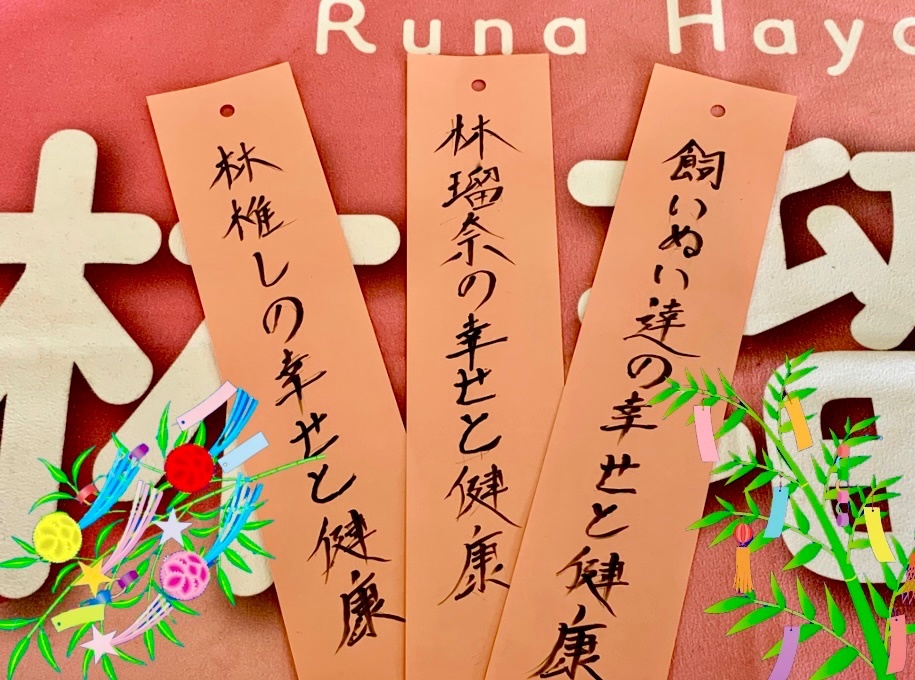 Runa Haya
飼いぬい達の幸せと健康
林瑠奈の幸せと健康
林椎しの幸せと健康